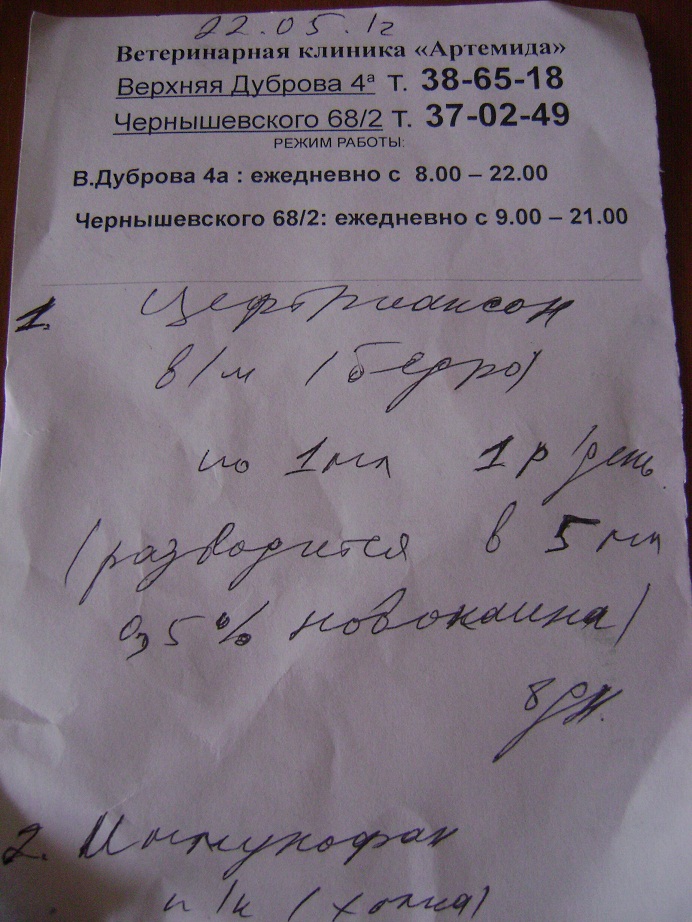 22.05.12
Ветеринарная клиника «Артемида»
Верхняя Дуброва 4ª т. 38-65-18
Чернышевского 68/2 т. 37-02-49
РЕЖИМ РАБОТЫ:
В.Дуброва 4а : ежедневно с 8.00 – 22.00
Чернышевского 68/2: ежедневно с 9.00 – 21.00
1. Цефтриаксон
в/м (бедро)
по 1 мл 1 р/день
(разводится в 5 мл
0,5% новокаина)
8 дн.
2. Иммунофан
п/к (холка)